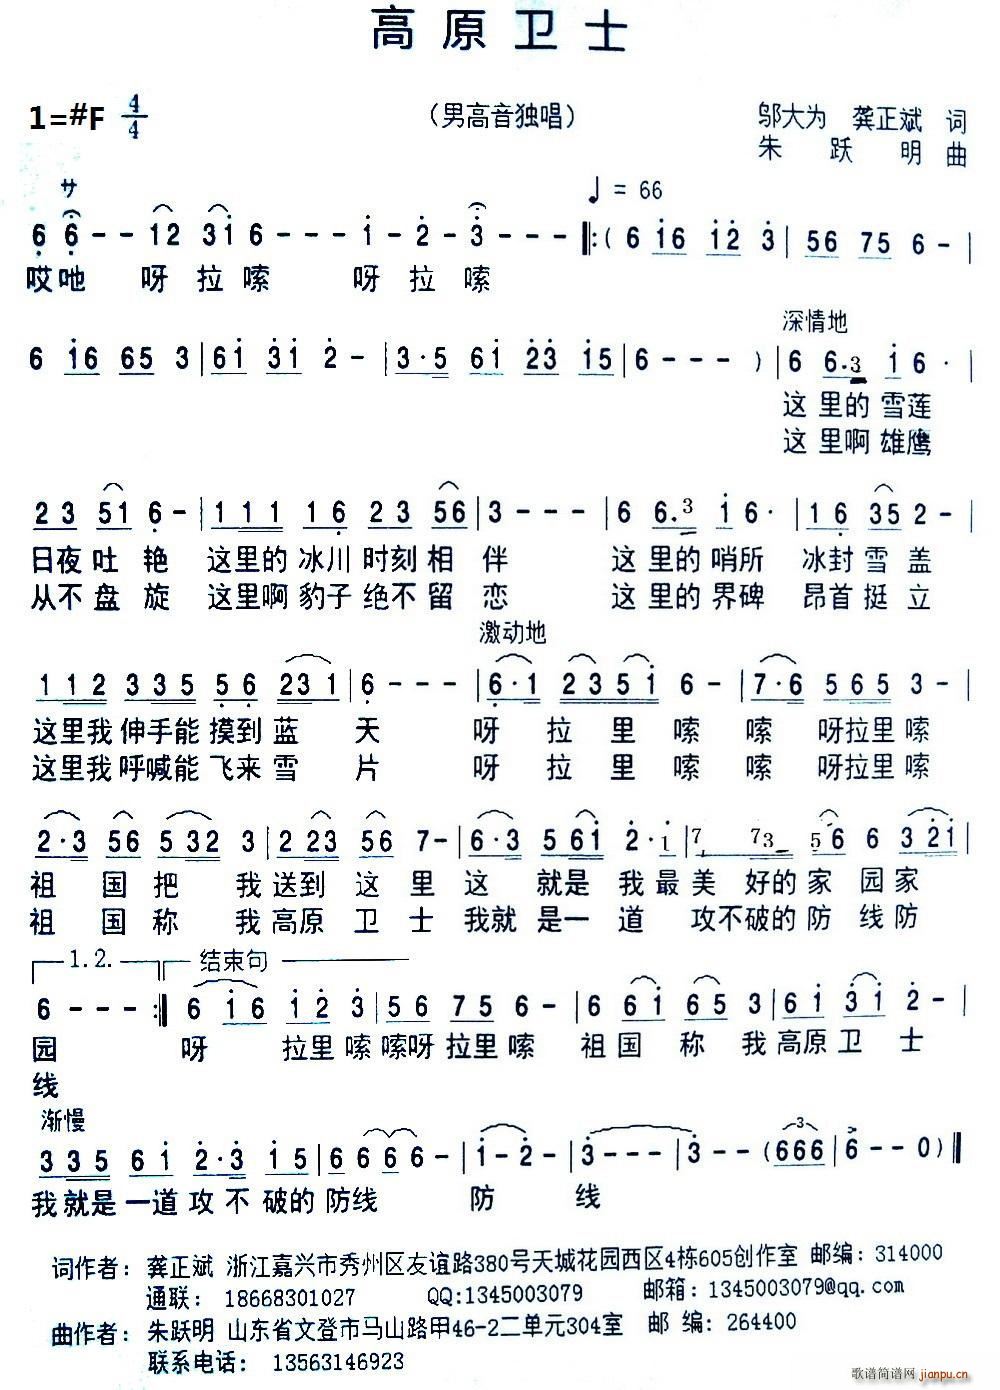 高原卫士
1=#F 4/4 （男高音独唱） 邬大为 龚正斌 词
朱跃明 曲
サ ♩= 66
6 6 - - 12 31 6 - - - 1 - 2 - 3 - - - ‖:( 6 16 12 3 | 56 75 6 - |
哎吔 呀拉嗦 呀拉嗦
深情地
6 16 65 3 | 61 31 2 - | 3·5 61 23 15 | 6 - - - ) | 6 6·3 16· |
这里的雪莲
这里啊雄鹰
23 51 6 - | 111 16 23 56 | 3 - - - | 6 6·3 16· | 16 35 2 - |
日夜吐艳 这里的冰川时刻相伴 这里的哨所 冰封雪盖
从不盘旋 这里啊豹子绝不留恋 这里的界碑 昂首挺立
激动地
112 335 56 231 | 6 - - - | 6·1 2351 6 - | 7·6 565 3 - |
这里我伸手能摸到蓝天 呀拉里嗦嗦 呀拉里嗦
这里我呼喊能飞来雪片 呀拉里嗦嗦 呀拉里嗦
2·3 56 532 3 | 2 23 56 7 - | 6·3 561 2·1 | 7 73 56 6 321 |
祖国把我送到这里这就是我最美好的家园家
祖国称我高原卫士我就是一道攻不破的防线防
1.2. 结束句
6 - - - :‖ 6 16 12 3 | 56 75 6 - | 6 61 65 3 | 61 31 2 - |
园 呀 拉里嗦嗦呀拉里嗦 祖国称我高原卫士
线
渐慢
335 61 2·3 15 | 6 66 6 - - | 1 - 2 - | 3 - - - | 3 - - (666 | 6 - - 0) ‖
我就是一道攻不破的防线 防线
词作者：龚正斌 浙江嘉兴市秀州区友谊路380号天城花园西区4栋605创作室 邮编：314000
通联：18668301027 QQ:1345003079 邮箱：1345003079@qq.com
曲作者：朱跃明 山东省文登市马山路甲46-2二单元304室 邮编：264400
联系电话：13563146923
歌谱简谱网 jianpu.cn